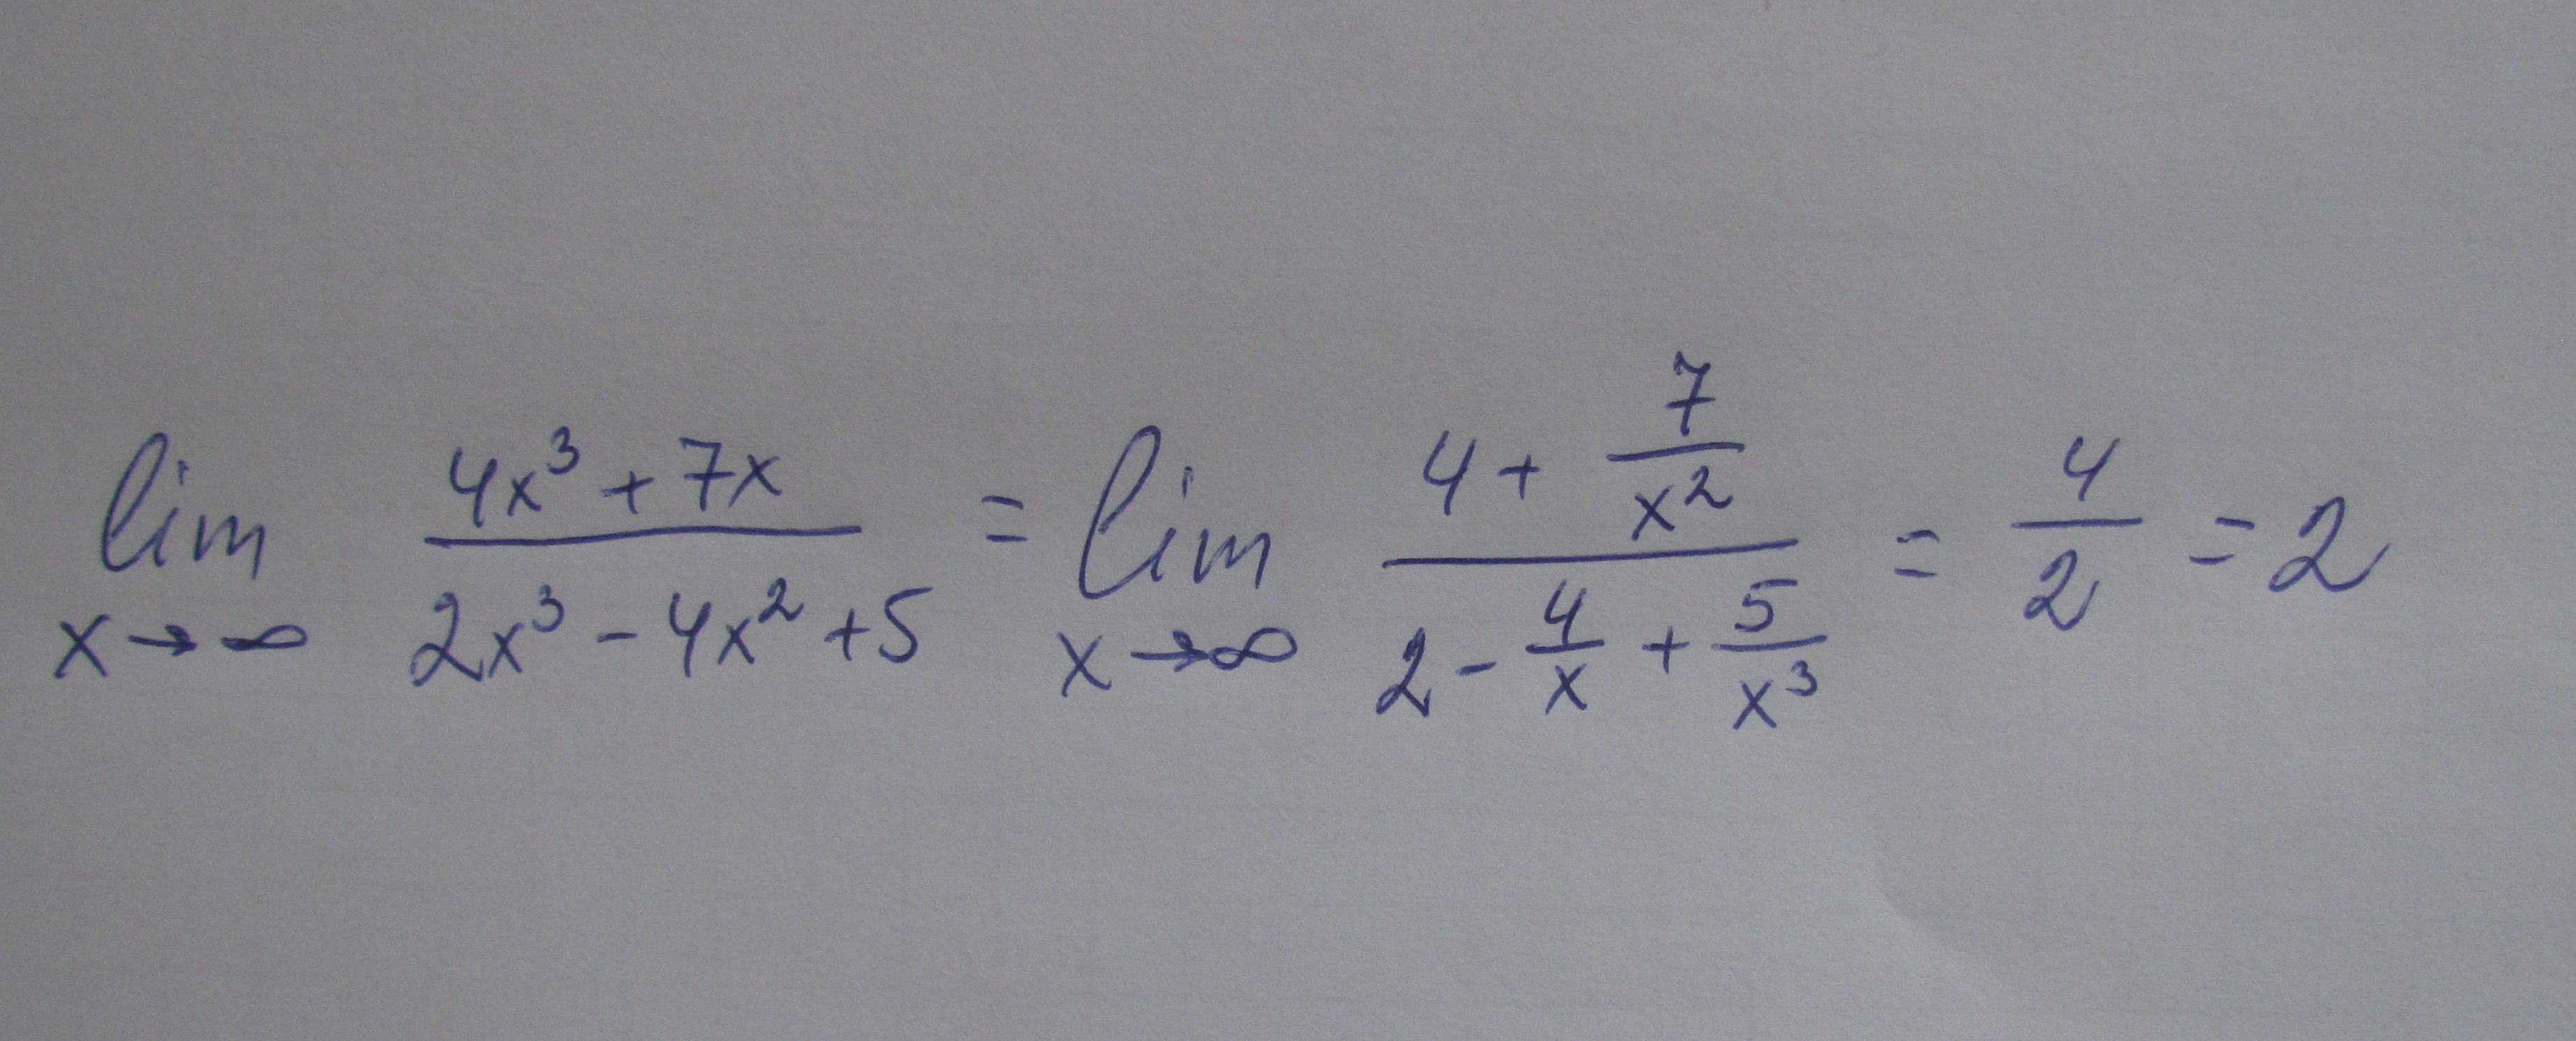 lim x→∞ (4x³ + 7x)/(2x³ - 4x² + 5) = lim x→∞ (4 + 7/x²)/(2 - 4/x + 5/x³) = 4/2 = 2